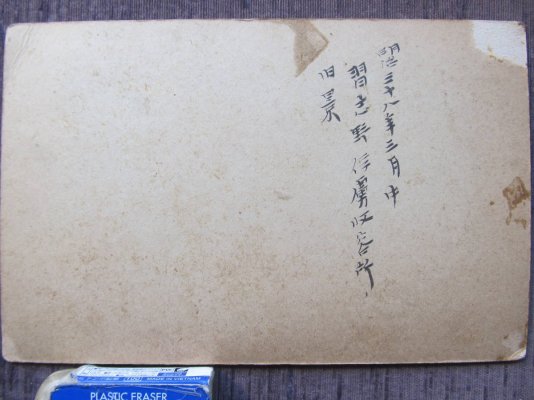 明治三十八年三月中
習志野俘虜収容所
旧景
MADE IN VIETNAM
PLASTIC ERASER